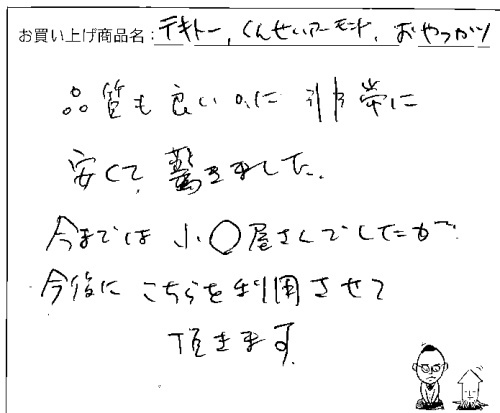 お買い上げ商品名：テキトー, くんせいアーモンド, おやつカツ
品質も良いのに非常に
安くて驚きました。
今までは小〇屋さんでしたが
今後にこちらを利用させて
頂きます。